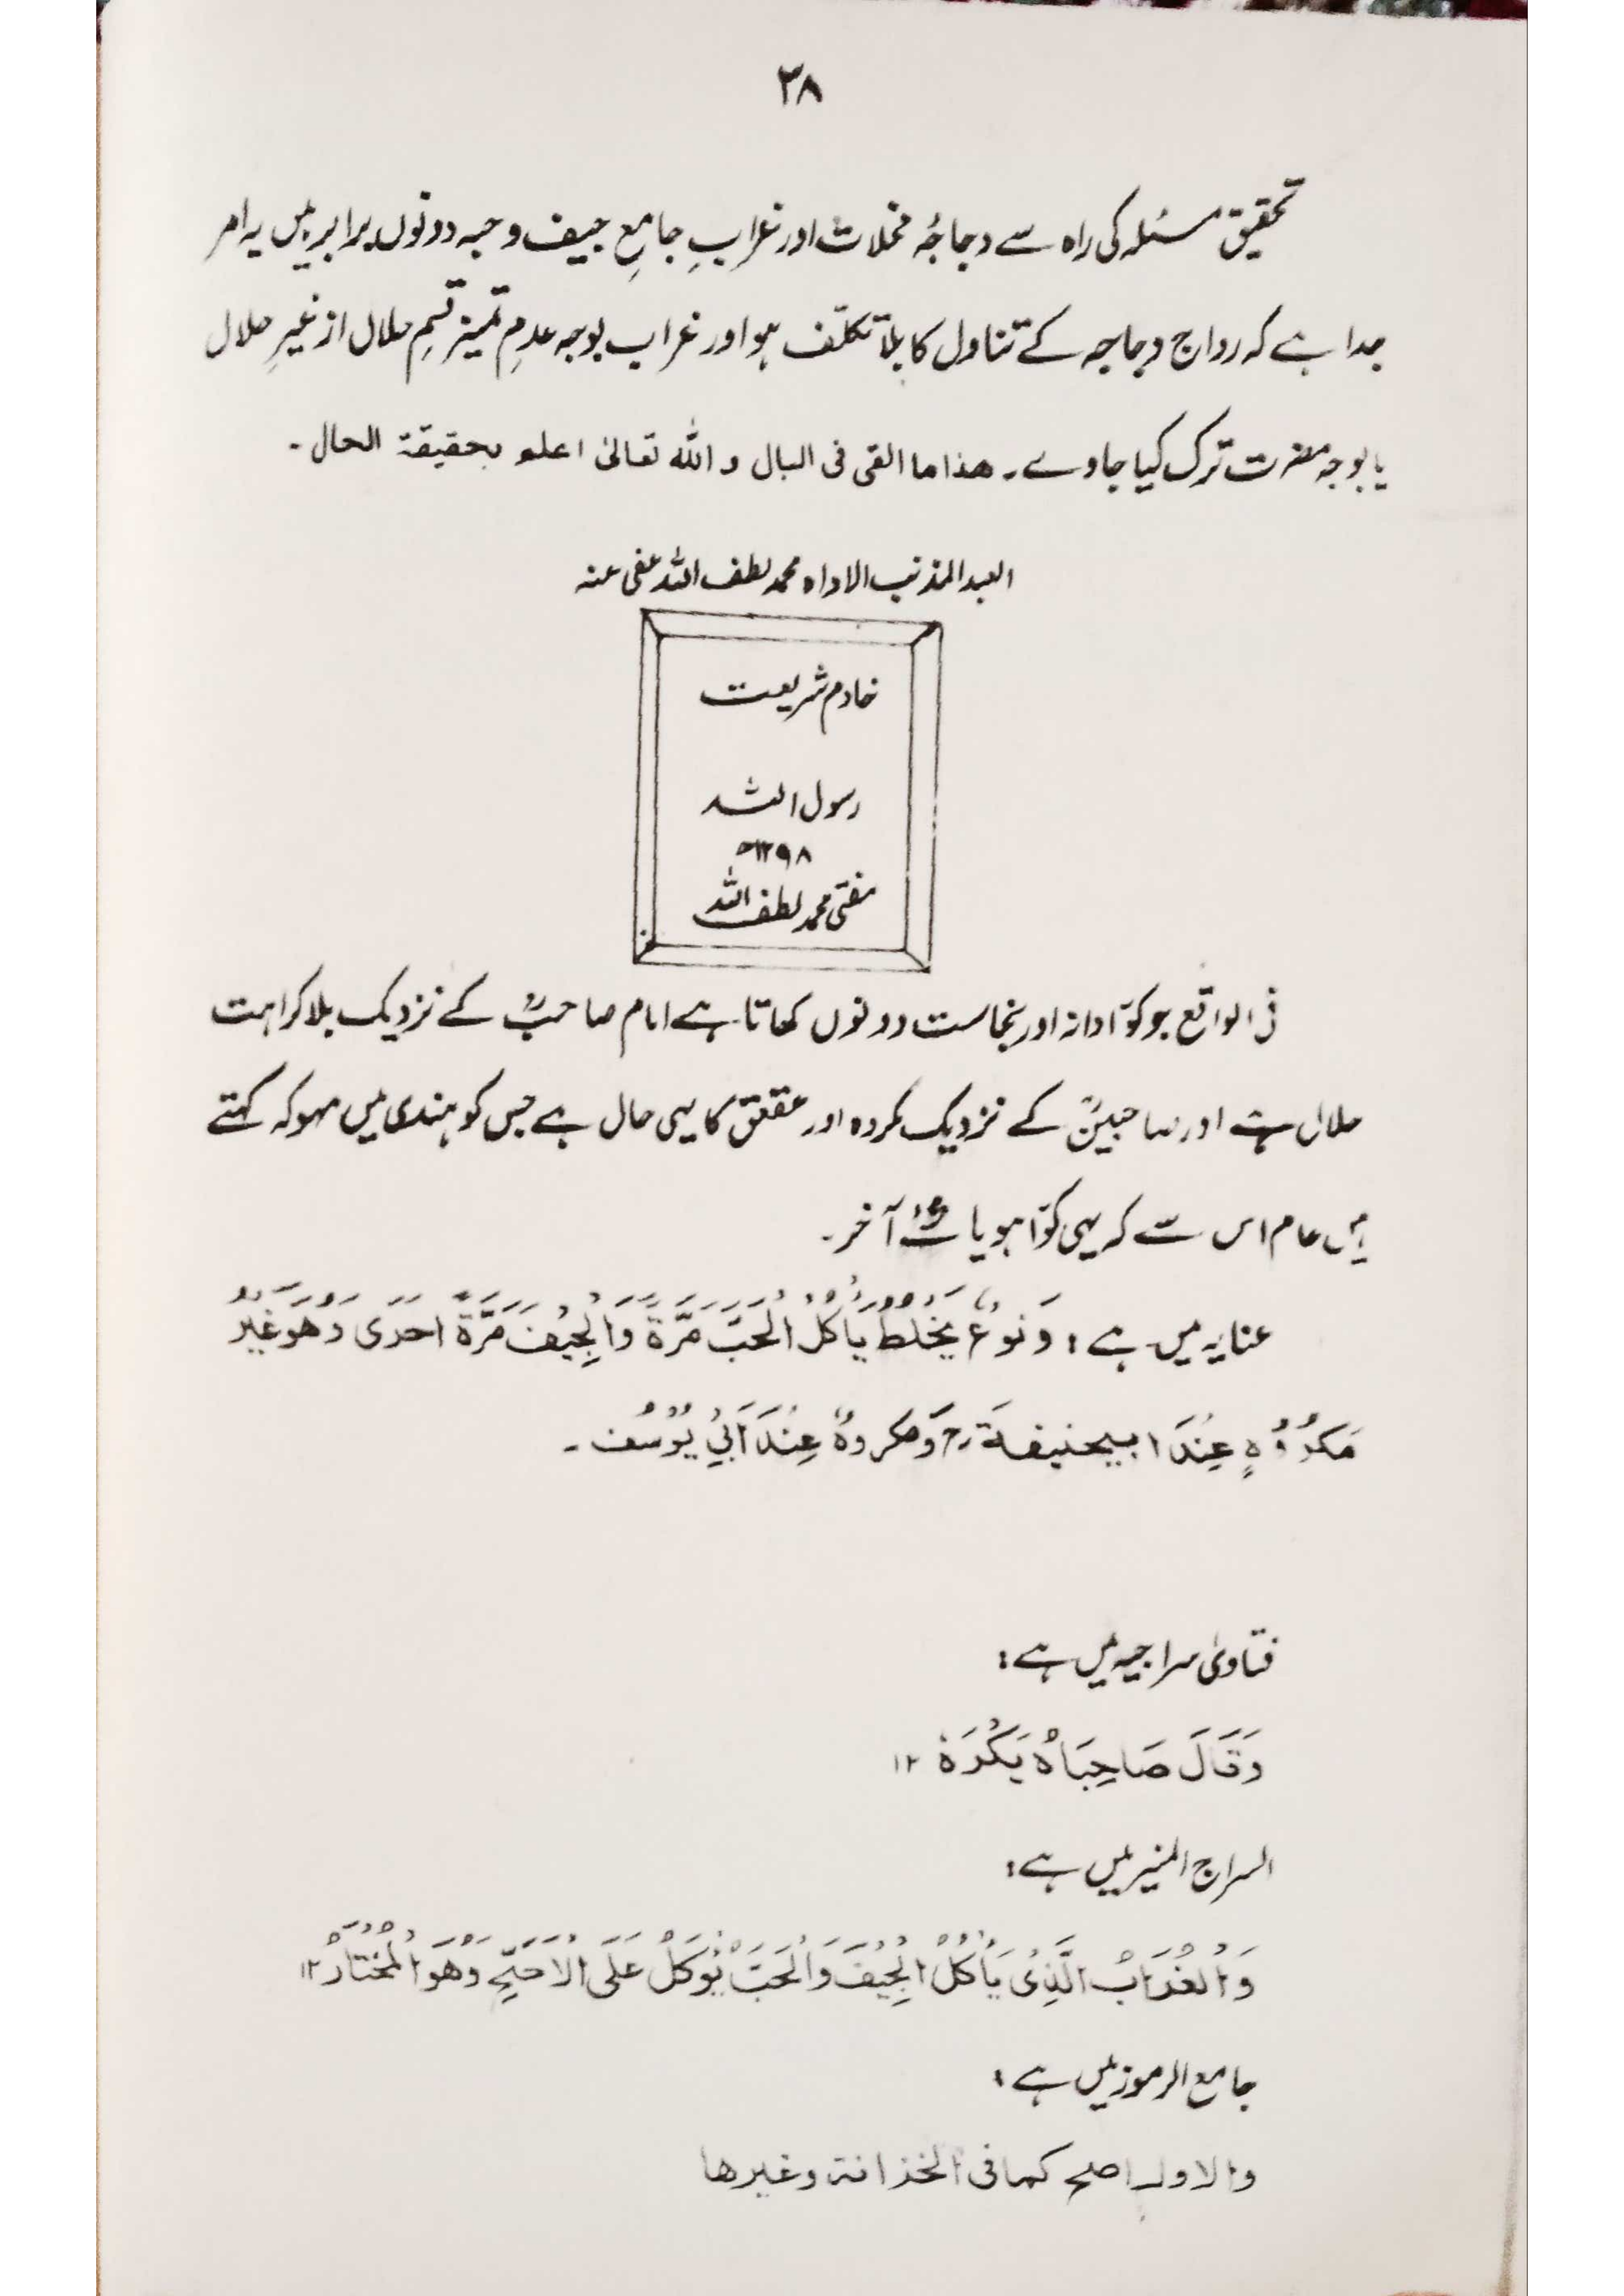 ۳۸
تحقیق مسئلہ کی راہ سے دجاجۂ مخلات اور غرابِ جامعِ جیف وحبہ دونوں برابر ہیں یہ امر
جدا ہے کہ رواج دجاجہ کے تناول کا بلا تکلّف ہو اور غراب بوجہ عدمِ تمیز قسمِ حلال از غیرِ حلال
یا بوجہ مضرت ترک کیا جاوے۔ ھذا ما القی فی البال و اللہ تعالیٰ اعلم بحقیقة الحال۔
العبد المذنب الاداہ محمد لطف اللہ عفی عنہ
خادم شریعت
رسول اللہ
۱۲۹۸ھ
مفتی محمد لطف اللہ
فی الواقع جو کوّا دانہ اور نجاست دونوں کھاتا ہے امام صاحبؒ کے نزدیک بلا کراہت
حلال ہے اور صاحبینؒ کے نزدیک مکروہ اور عقعق کا یہی حال ہے جس کو ہندی میں مہوکہ کہتے
ہیں عام اس سے کہ یہی کوّا ہو یا شئ آخر۔
عنایہ میں ہے: وَنَوْعٌ یَخْلُطُ یَأْکُلُ الْحَبَّ مَرَّةً وَالْجِیْفَ مَرَّةً اُخْرَی وَھُوَ غَیْرُ
مَکْرُوْہٍ عِنْدَ ابیحنیفة رح وَمکروہٌ عِنْدَ اَبِیْ یُوْسُف۔
فتاویٰ سراجیہ میں ہے:
وَقَالَ صَاحِبَاہُ یَکْرَہُ ۱۲
السراج المنیر میں ہے:
وَالْغُرَابُ الَّذِیْ یَأْکُلُ الْجِیْفَ وَالْحَبَّ یُوْکَلُ عَلَی الْاَصَحِّ وَھُوَ الْمُخْتَارُ ۱۲
جامع الرموز میں ہے:
والاول اصح کما فی الخزانة وغیرھا